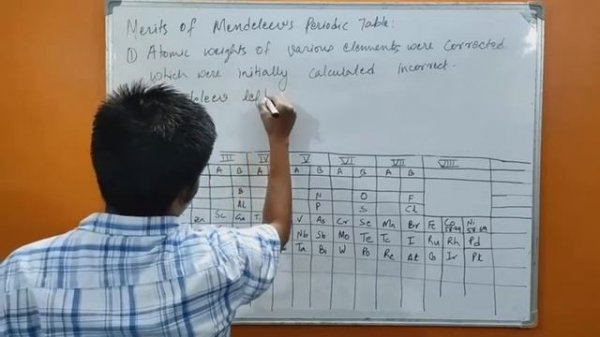 Merits of Mendeleev's Periodic Table:
① Atomic weights of various elements were corrected
which were initially calculated incorrect.
III IV V VI VII VIII
A B A A B A B A B
B N O F
Al P S Cl
Zn Sc Ga V As Cr Se Mn Br Fe Co Ni
Nb Sb Mo Te Tc I Ru Rh Pd
Ta Bi W Po Re At Os Ir Pt